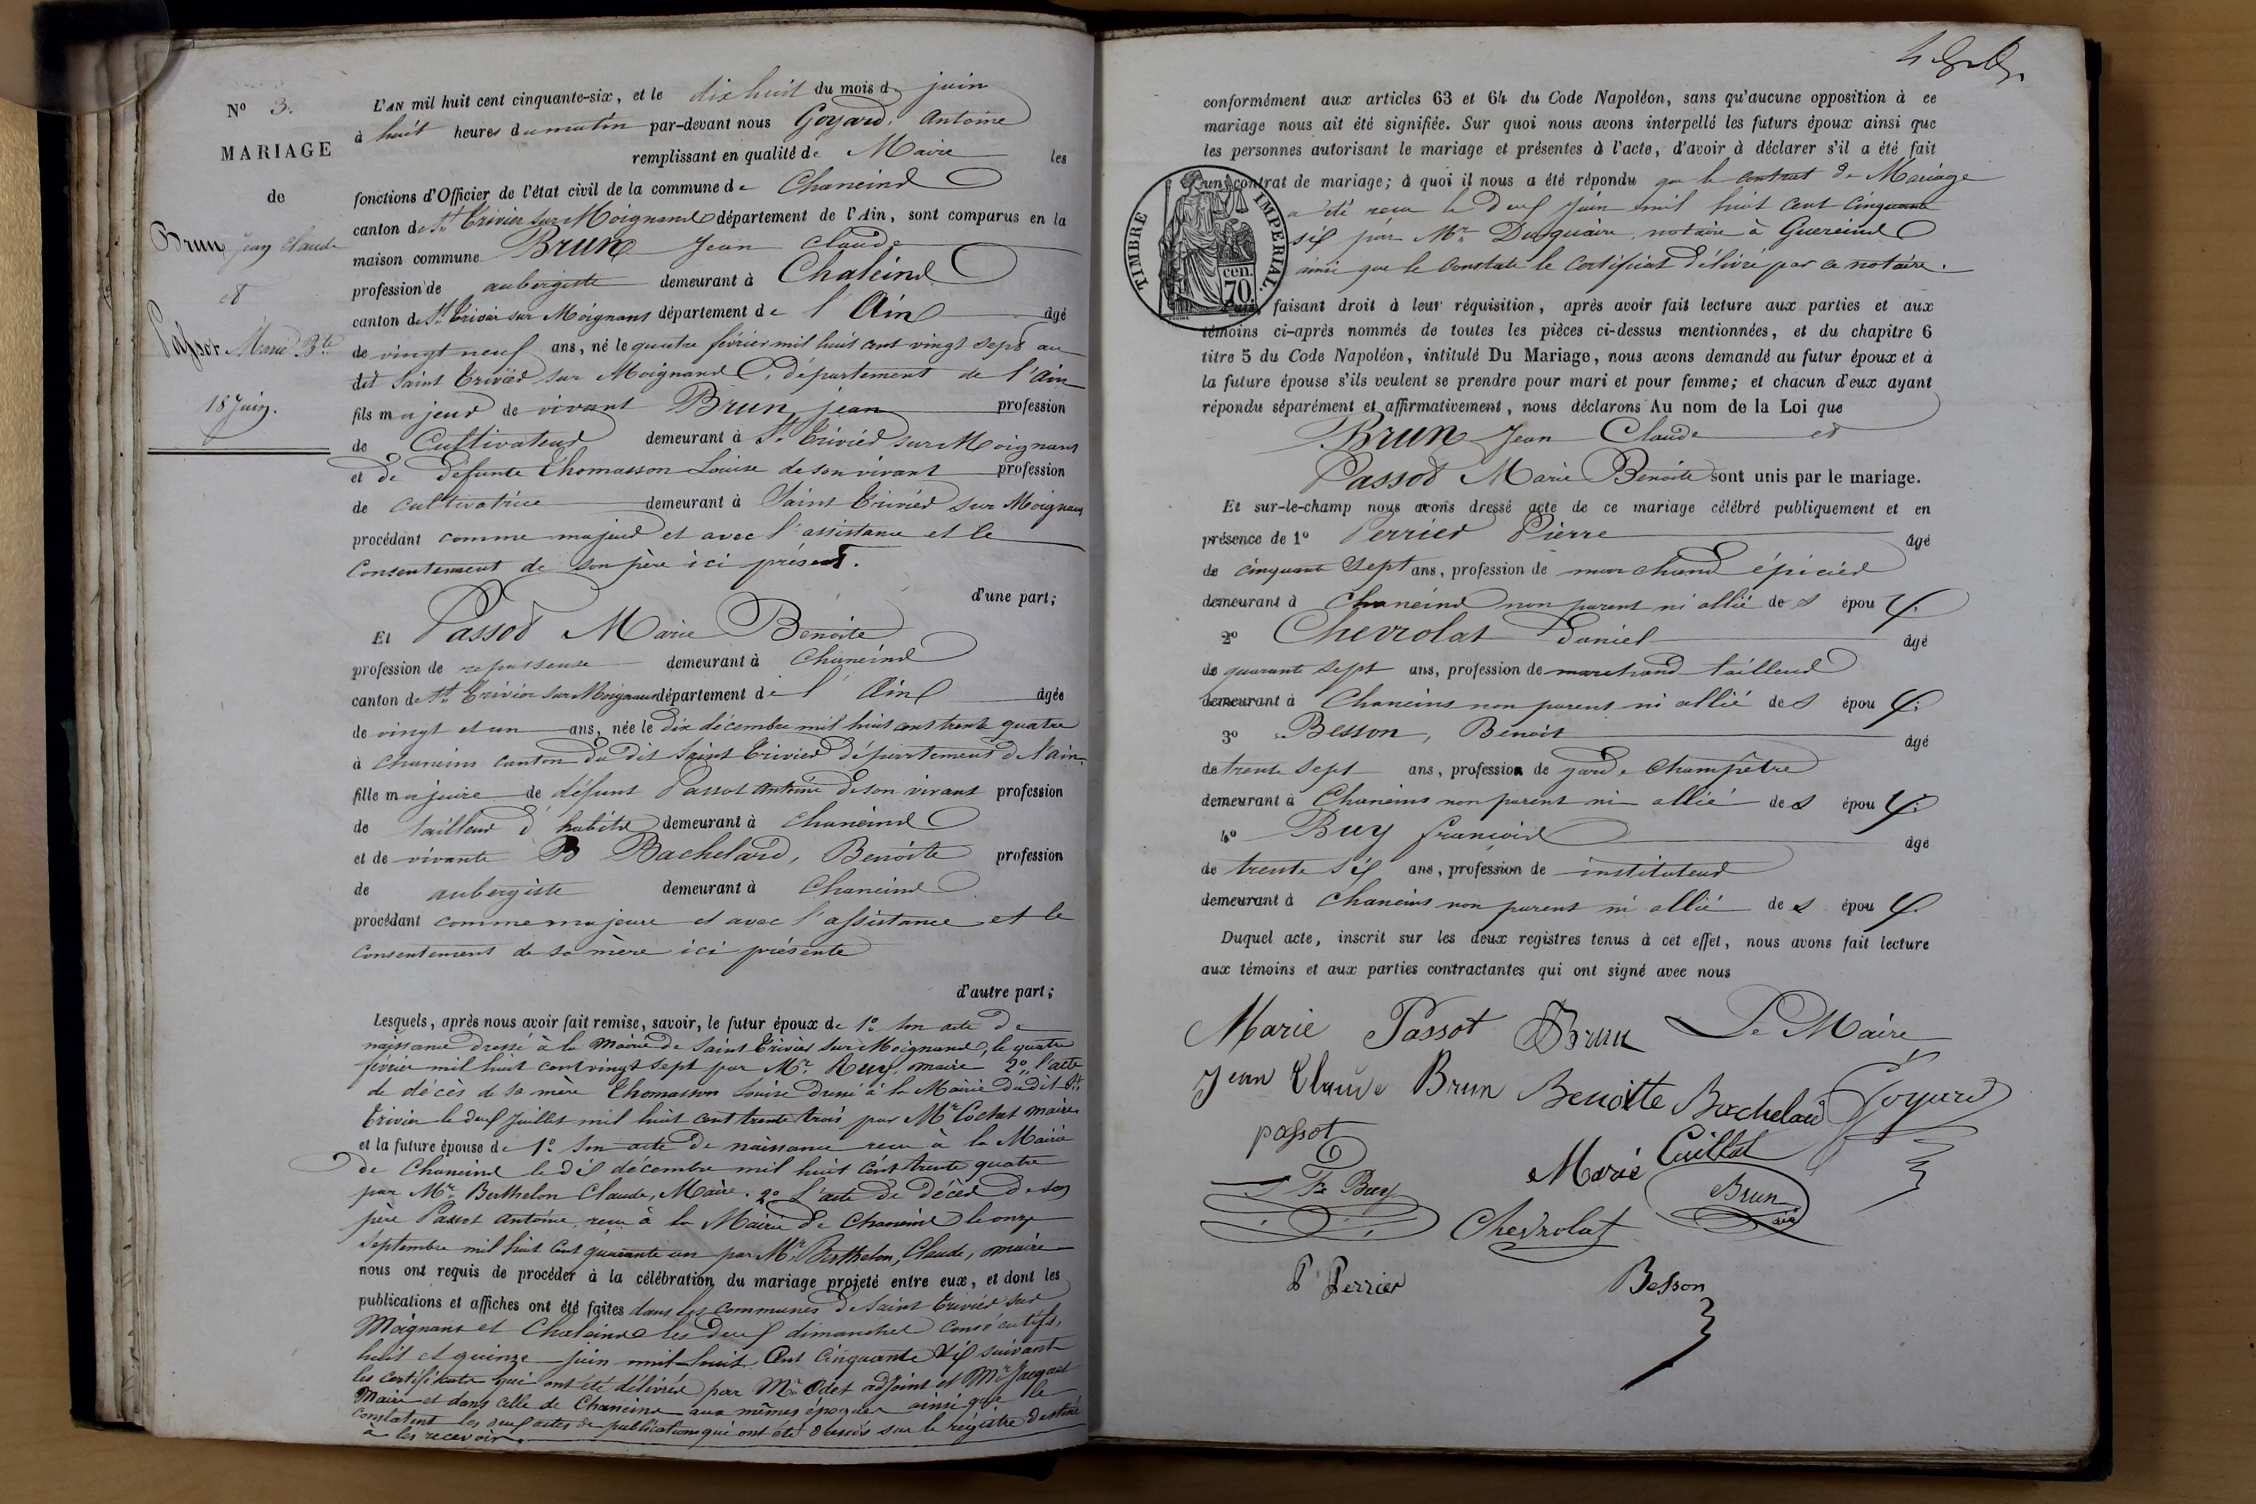 N° 3.
MARIAGE
de
Brun Jean Claude
et
Passot Marie Bte
18 Juin.
L'AN mil huit cent cinquante-six, et le dix huit du mois de juin
à huit heures du matin par-devant nous Goyard, Antoine
remplissant en qualité de Maire les
fonctions d'Officier de l'état civil de la commune de Chaneins
canton de St Trivier sur Moignans département de l'Ain, sont comparus en la
maison commune Brun Jean Claude
profession de aubergiste demeurant à Chaleins
canton de St Trivier sur Moignans département de l'Ain âgé
de vingt neuf ans, né le quatre février mil huit cent vingt sept au
dit Saint Trivier sur Moignans, département de l'Ain
fils majeur de vivant Brun, jean profession
de Cultivateur demeurant à St Trivier sur Moignans
et de défunte Thomasson Louise de son vivant profession
de cultivatrice demeurant à Saint Trivier sur Moignans
procédant comme majeur et avec l'assistance et le
Consentement de son père ici présent.
d'une part;
Et Passot Marie Benoite
profession de repasseuse demeurant à Chaneins
canton de St Trivier sur Moignans département de l'Ain âgée
de vingt et un ans, née le dix décembre mil huit cent trente quatre
à Chaneins canton du dit Saint Trivier département de l'ain.
fille majeure de défunt Passot Antoine de son vivant profession
de tailleur d'habits demeurant à Chaneins
et de vivante B Bachelard, Benoite profession
de aubergiste demeurant à Chaneins
procédant comme majeure et avec l'assistance et le
consentement de sa mère ici présente
d'autre part;
Lesquels, après nous avoir fait remise, savoir, le futur époux de 1° Son acte de
naissance dressé à la Mairie de Saint Trivier sur Moignans, le quatre
février mil huit cent vingt sept par Mr Ruy, maire 2° l'acte
de décès de sa mère Thomasson Louise dressé à la Mairie du dit St
Trivier le deux Juillet mil huit cent trente trois par Mr Cochet maire
et la future épouse de 1° Son acte de naissance reçu à la Mairie
de Chaneins le dix décembre mil huit cent trente quatre
par Mr Berthelon Claude, Maire. 2° L'acte de décès de son
père Passot Antoine reçu à la Mairie de Chaneins le onze
Septembre mil huit cent quarante un par Mr Berthelon, Claude, maire
nous ont requis de procéder à la célébration du mariage projeté entre eux, et dont les
publications et affiches ont été faites dans les communes de Saint Trivier sur
Moignans et Chaleins les deux dimanches consécutifs,
huit et quinze juin mil huit Cent Cinquante Six suivant
les certificats qui ont été délivrés par Mr Odet adjoint et Mr Jacquet
Maire et dans celle de Chaneins aux mêmes époques ainsi que le
constatent les deux actes de publications qui ont été dressés sur le régistre destiné
à les recevoir.
conformément aux articles 63 et 64 du Code Napoléon, sans qu'aucune opposition à ce
mariage nous ait été signifiée. Sur quoi nous avons interpellé les futurs époux ainsi que
les personnes autorisant le mariage et présentes à l'acte, d'avoir à déclarer s'il a été fait
un contrat de mariage; à quoi il nous a été répondu que le contrat de Mariage
a été reçu le deux Juin mil huit cent cinquante
six par Mr Duquaire, notaire à Guereins
ainsi que le constate le certificat délivré par ce notaire.
TIMBRE IMPERIAL.
cen.
70
Puis, faisant droit à leur réquisition, après avoir fait lecture aux parties et aux
témoins ci-après nommés de toutes les pièces ci-dessus mentionnées, et du chapitre 6
titre 5 du Code Napoléon, intitulé Du Mariage, nous avons demandé au futur époux et à
la future épouse s'ils veulent se prendre pour mari et pour femme; et chacun d'eux ayant
répondu séparément et affirmativement, nous déclarons Au nom de la Loi que
Brun Jean Claude et
Passot Marie Benoite sont unis par le mariage.
Et sur-le-champ nous avons dressé acte de ce mariage célébré publiquement et en
présence de 1° Perrier Pierre âgé
de cinquante Sept ans, profession de marchand épicier
demeurant à Chaneins non parent ni allié des époux.
2° Chevrolat Daniel âgé
de quarante sept ans, profession de marchand tailleur
demeurant à Chaneins non parent ni allié des époux.
3° Besson, Benoit âgé
de trente Sept ans, profession de garde champêtre
demeurant à Chaneins non parent ni allié des époux.
4° Buy françois âgé
de trente six ans, profession de instituteur
demeurant à Chaneins non parent ni allié des époux.
Duquel acte, inscrit sur les deux registres tenus à cet effet, nous avons fait lecture
aux témoins et aux parties contractantes qui ont signé avec nous
Marie Passot Brun Le Maire
Jean Claude Brun Benoitte Bachelard Goyard
passot
Marie Cuillat
Fs Buy
Brun
Chevrolat
P Perrier
Besson